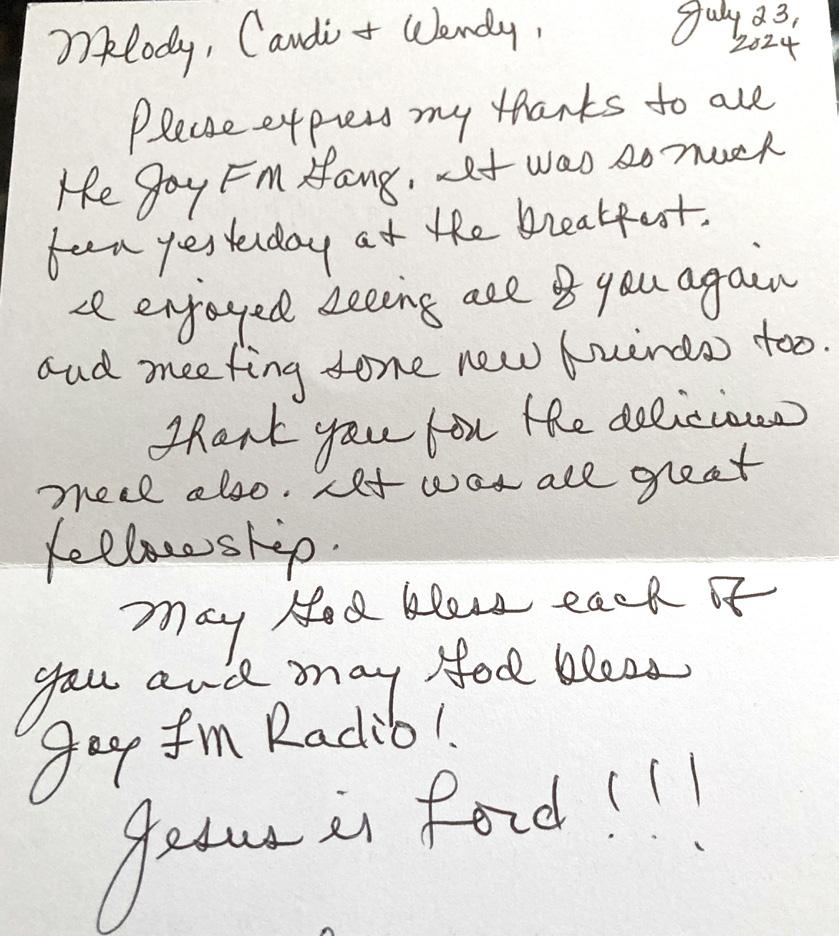 July 23,
2024
Melody, Candi + Wendy,
Please express my thanks to all
the Joy FM Gang. It was so much
fun yesterday at the breakfast.
I enjoyed seeing all of you again
and meeting some new friends too.
Thank you for the delicious
meal also. It was all great
fellowship.
May God bless each of
you and may God bless
Joy FM Radio!
Jesus is Lord!!!